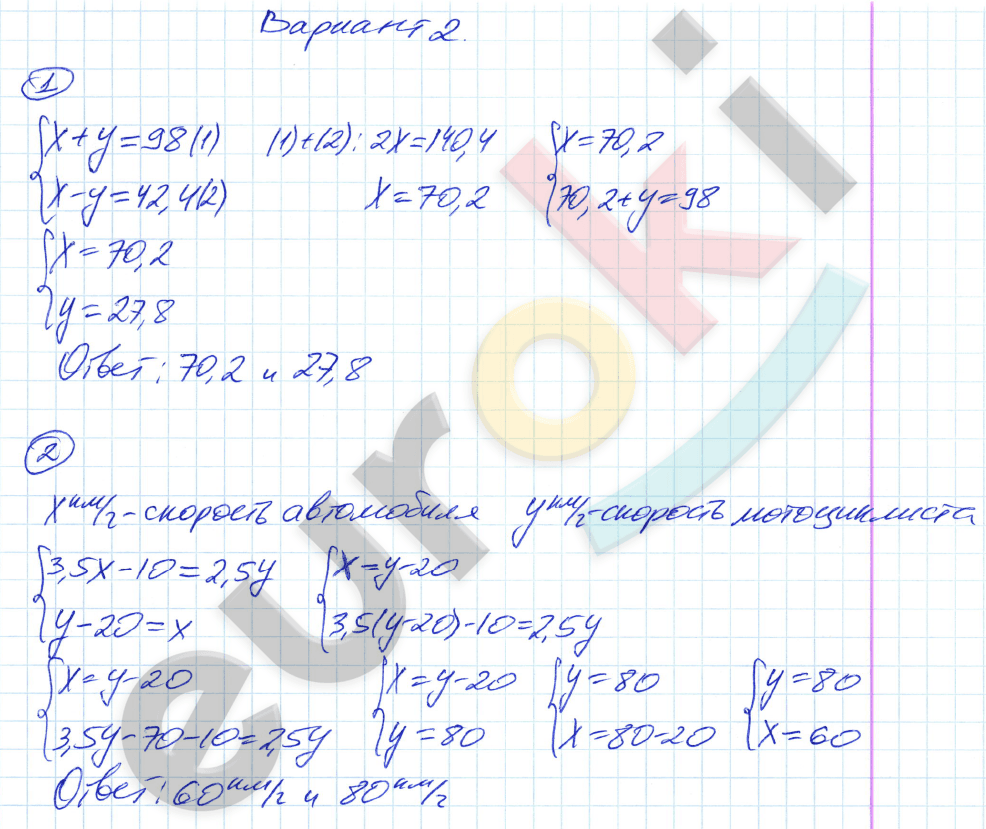 Вариант 2.
1
x+y=98(1) (1)+(2): 2x=140,4 x=70,2
x-y=42,4(2) x=70,2 70,2+y=98
x=70,2
y=27,8
Ответ: 70,2 и 27,8
2
x км/г - скорость автомобиля y км/г - скорость мотоциклиста
3,5x-10=2,5y x=y-20
y-20=x 3,5(y-20)-10=2,5y
x=y-20 x=y-20 y=80 y=80
3,5y-70-10=2,5y y=80 x=80-20 x=60
Ответ: 60 км/г и 80 км/г
euroki